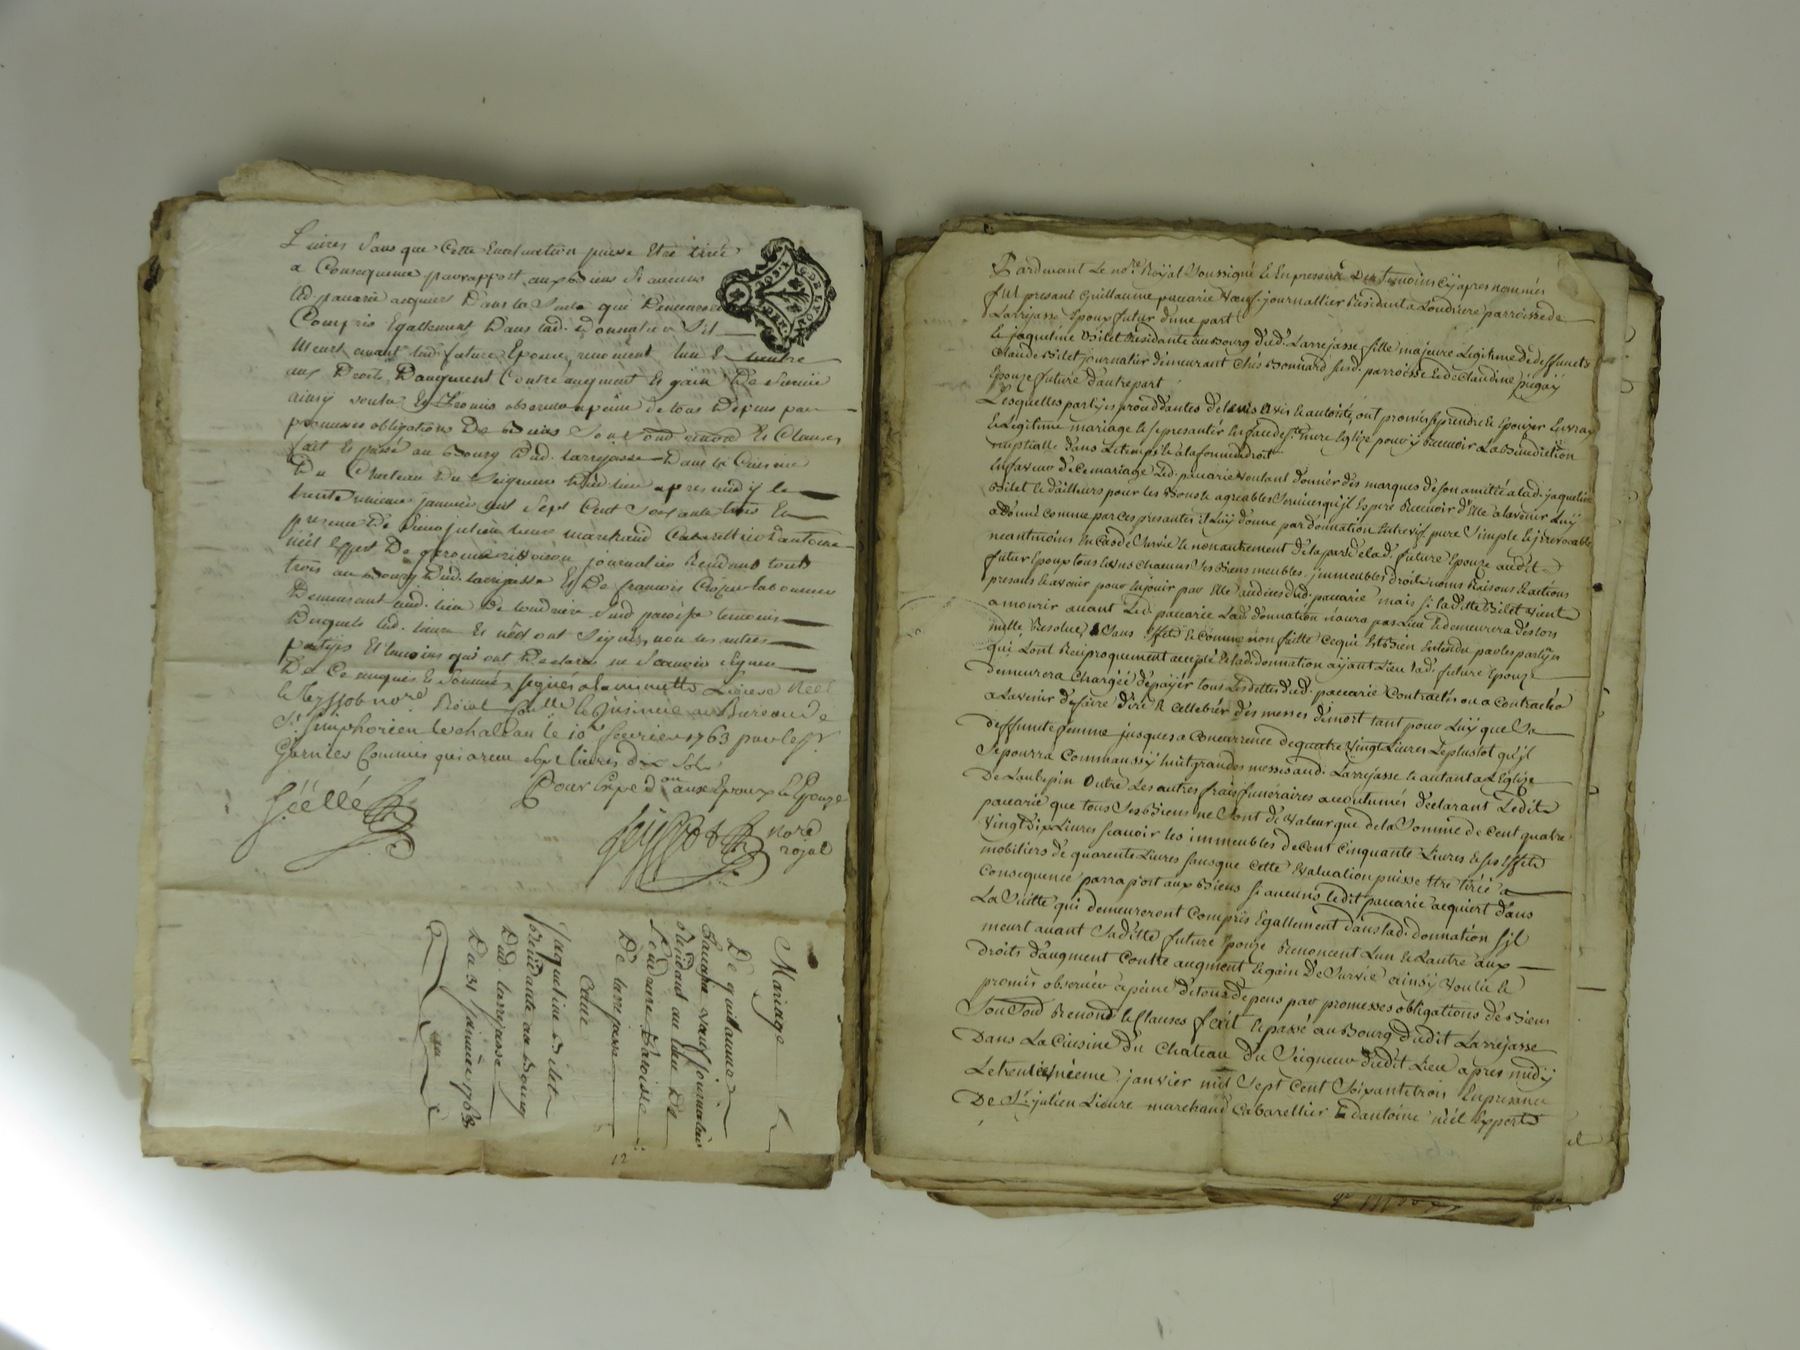 Livres sans que Cette Evaluation puisse Etre tirée
a Consequence parrapport aux Biens si aucuns
led. pacarie acquiert Dans la Suite qui Demeureront
Compris Egallement Dans lad. Donnation S'il
Meurt avant lad. future Epouse, renoncent lun & l'autre
aux Droits D'augment Contre augment & gain De Survie
ainsy voulu & promis observer a peine de tous Depens par
promesses obligations De Biens Sous Ond renond & Clauses
fait & passé au Bourg dud. Larrejasse Dans la Cuisine
Du Chateau Du Seigneur dud. lieu apres midy le
trente unieme janvier mil Sept Cent Soixante trois En
presence De Sieur julien Lieure marchand Cabarettier D'antoine
néel Expert De journalier Residents touts
trois au Bourg dud. larrejasse & De francois Crozier laboureur
Demeurant aud. lieu De Loudiere susd. paroisse temoins
Desquels led. Lieure & néel ont Signés, non les autres
partyes Et temoins qui ont Declarés ne Scavoir Signer
De Ce enquis & Sommés, Signés a la minutte Lieure Néel
& Royal Controllé & Insinué au Bureau de
St. Simphorien le chateau le 10e. fevrier 1763 par le Sr.
Commis qui a reçu Sept livres dix Sols
Pour Expedon. aux Epoux & Epouze
nore
royal
Mariage
De guillaume
pacarie veuf journalier
Residant au lieu De
Loudiere Paroisse
De larrejasse
Avec
jaqueline Bilet
Residante au Bourg
Dud. larrejasse
Du 31 janvier 1763
12
Pardevant Le nore. Royal Soussigné & En presence Des temoins cy apres nommés
fut present Guillaume pacarie veuf journallier Residant a Loudiere parroisse de
Larrejasse Epoux futur dune part
& jaqueline Bilet Residante au Bourg dud. Larrejasse fille majeure Legitime de deffunets
Claude Bilet journalier demeurant Chés Bonnard susd. parroisse & de Claudine pugay
Epouze future d'autre part
Lesquelles partyes procedantes de leurs avis & autorité, ont promis se prendre & Epouzer En vray
& Legitime mariage & se presenter En face de ste. mere Eglize pour y Recevoir La Benediction
nuptialle dans Le temps & a la forme du droit
En faveur de Ce mariage Led. pacarie voulant donner des marques de son amitié a lad. jaqueline
Bilet & dailleurs pour les Bons & agreables Services qu'jl Espere Recevoir d'Elle a lavenir Luy
a donné comme par Ces presantes Il Luy donne par donnation Entrevifs pure Simple & jrrevocable
neantmoins En Cas de Survie & non autrement de la part de lad. future Epouze audit
futur Epoux tous & uns Chacuns Ses Biens meubles, jmmeubles droits noms Raisons & actions
presans & avenir pour En jouir par Elle au deces dud. pacarie mais si laditte Bilet vient
a mourir avant Led. pacarie Lad. donnation n'aura pas Lieu & demeurera dés lors
nulle Resolue & Sans Effet & Comme non faitte Ce qui Est Bien Entendu par les partyes
qui L'ont Reciproquement accepté & lad. donnation ayant Lieu Lad. future Epouze
demeurera Chargée de payer tous Les dettes dud. pacarie Contractés ou a Contracter
a Lavenir de faire dire & Cellebrer des messes de mort tant pour Luy que Sa
deffunte femme jusques a Concurrence de quatre vingt Livres Le plustot qu'jl
Se pourra Comm'aussy huit grandes messes aud. Larrejasse & autant a L'Eglize
De Laubepin Outre Les autres frais funéraires accoutumés declarant Ledit
pacarie que tous Ses Biens ne Sont de Valeur que de la Somme de Cent quatre
Vingt Dix Livres Scavoir les immeubles de Cent Cinquante Livres & Ses Effets
mobiliers de quarente Livres Sans que Cette Evaluation puisse Etre tirée a
Consequence parraport aux Biens si aucuns ledit pacarie acquiert dans
La Suitte qui demeureront Compris Egallement dans lad. donnation S'jl
meurt avant Saditte future Epouze Renoncent L'un & L'autre aux
droits daugment Contre augment & gain De Survie ainsy voulu &
promis observer a peine de tous depens par promesses obligations de Biens
Sous Ond Renond & Clauses fait & passé au Bourg dudit Larrejasse
Dans La Cuisine du Chateau du Seigneur dudit Lieu apres midy
Le trente unieme janvier mil Sept Cent Soixante trois En presance
De Sr. julien Lieure marchand Cabarettier & d'antoine néel Expert